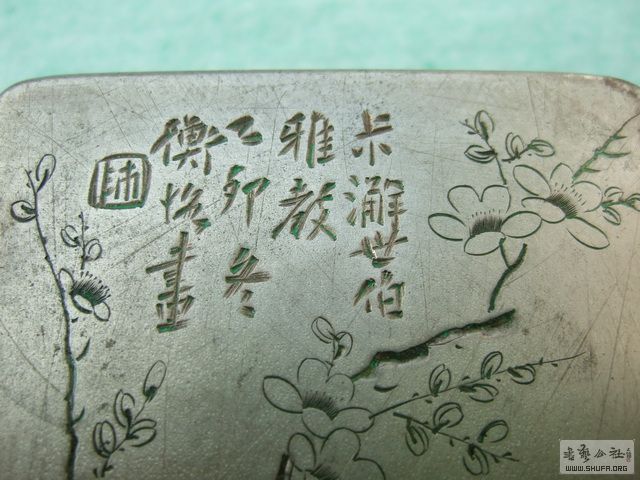 世伯
雅教
乙卯冬
衡恪畫
書藝公社
WWW.SHUFA.ORG